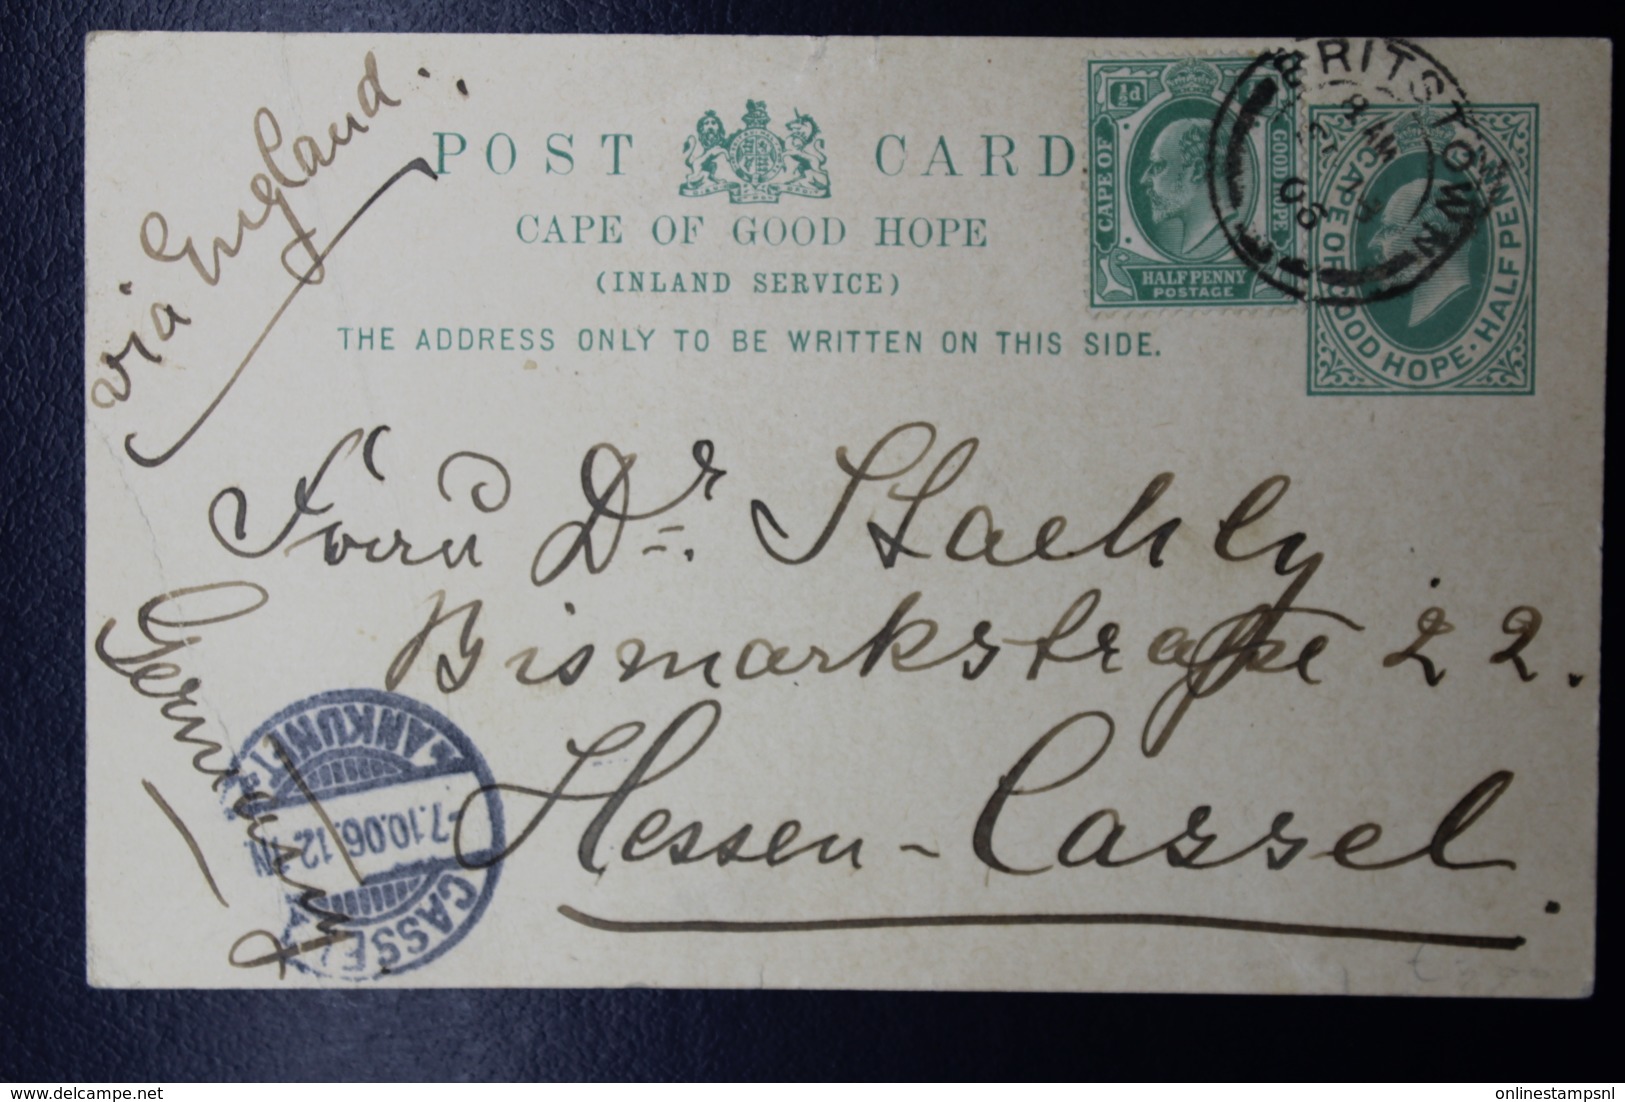 via England.
POST CARD
CAPE OF GOOD HOPE
(INLAND SERVICE)
THE ADDRESS ONLY TO BE WRITTEN ON THIS SIDE.
½d
CAPE OF GOOD HOPE
HALFPENNY
POSTAGE
BRITSTOWN
8 AM
06
CAPE OF GOOD HOPE · HALFPENNY
Frau Dr. Staehly
Bismarkstraße 22.
Hessen-Cassel.
Germany
CASSEL
-7.10.06.12-1N.
*ANKUNFT*
onlinestampsnl